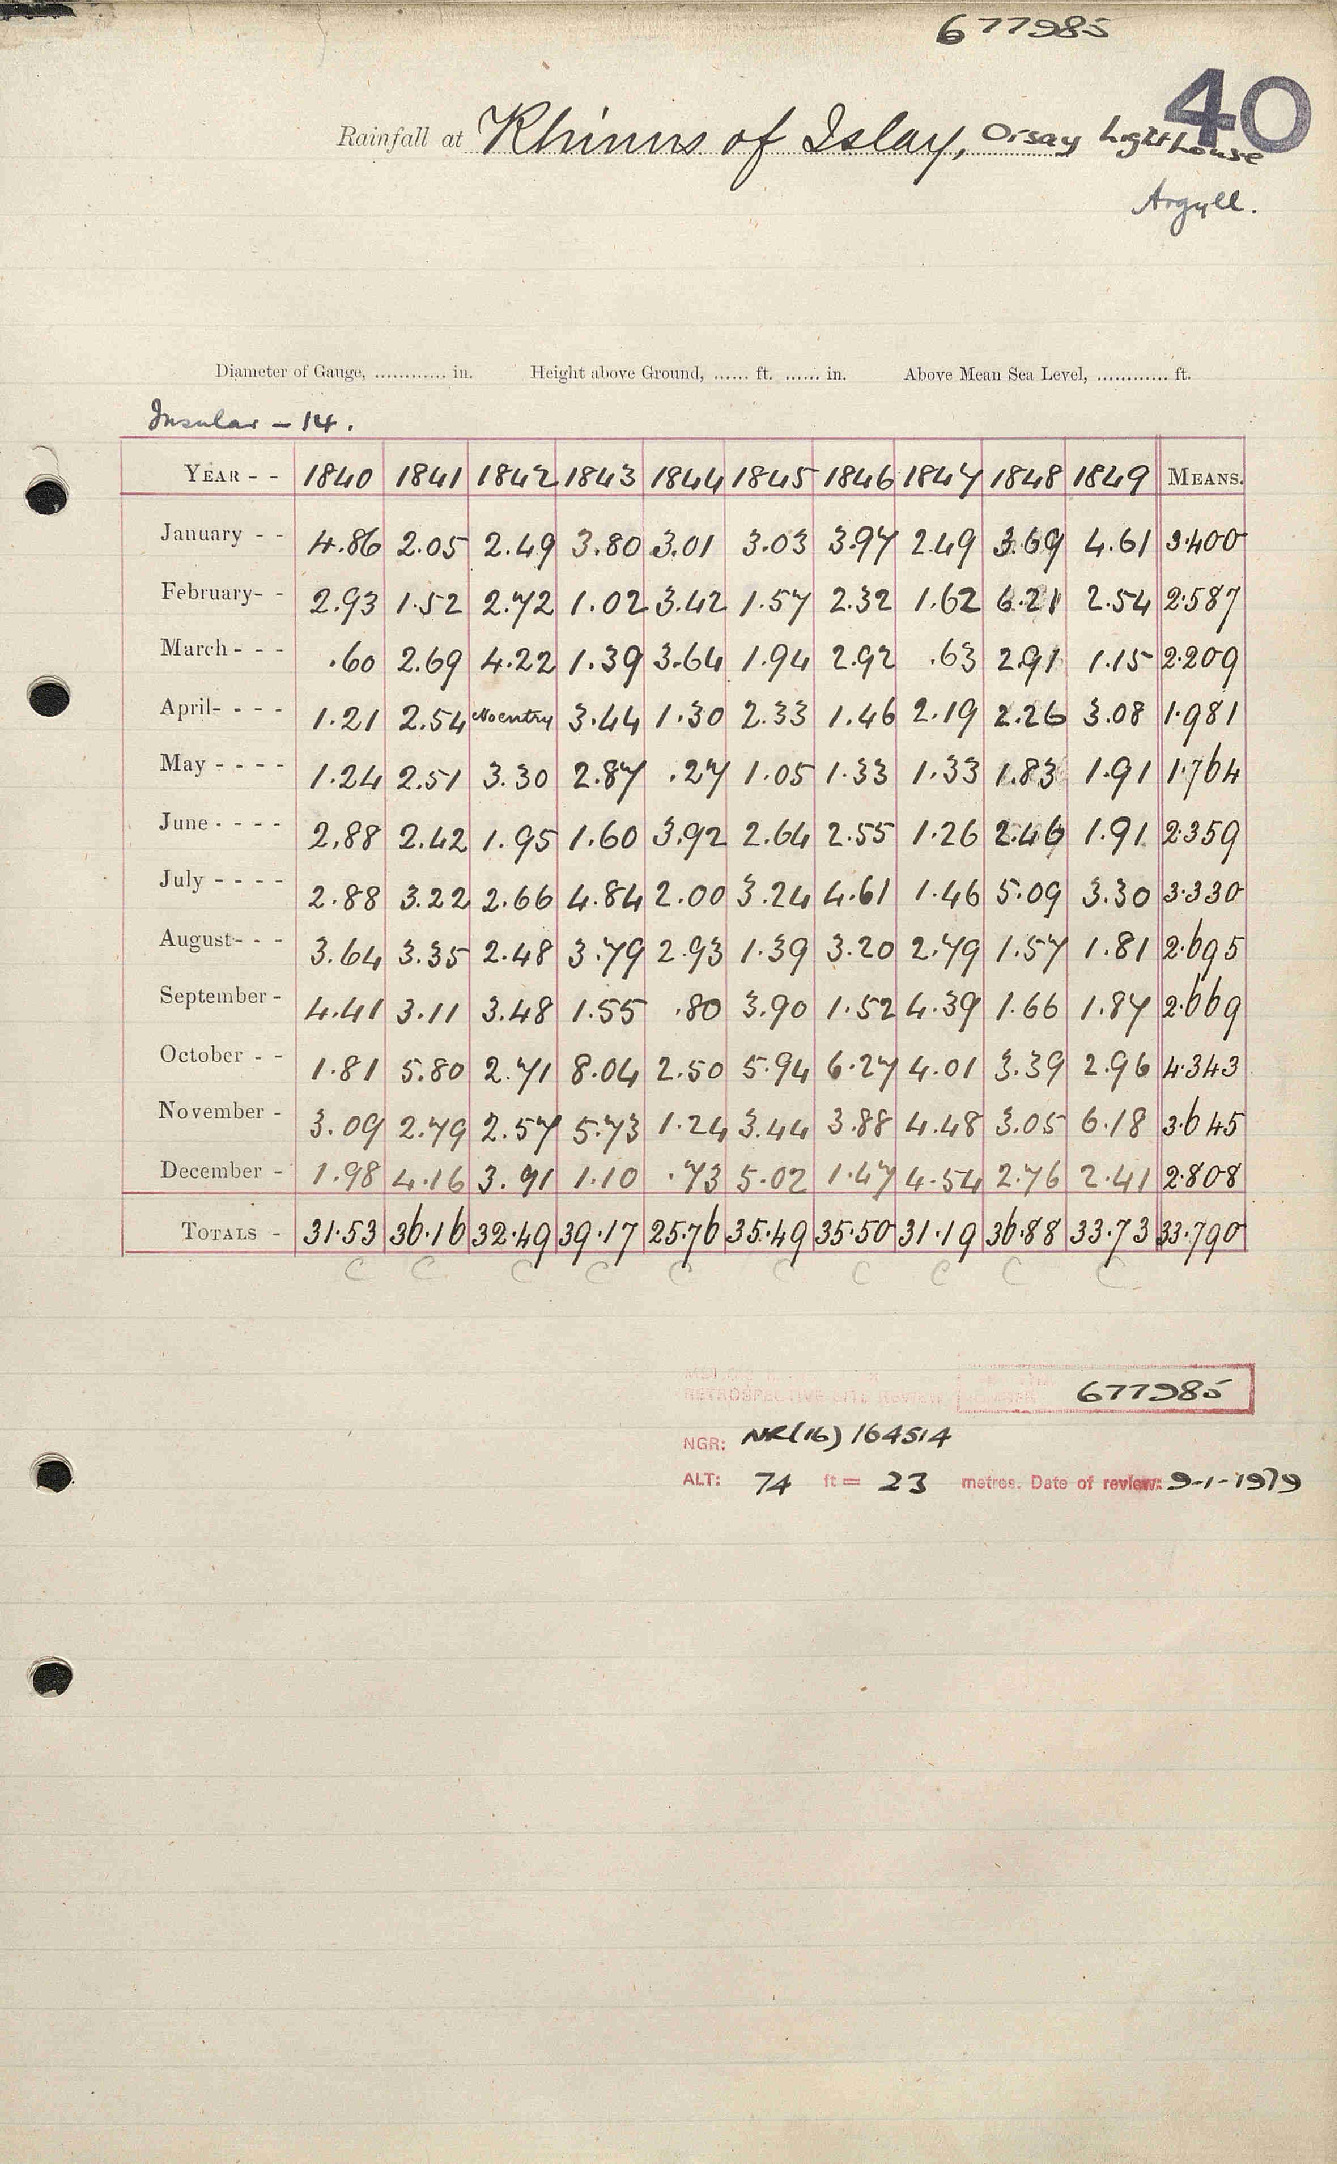 677985
40
Rainfall at Rhinns of Islay, Orsay Lighthouse
Argyll.
Diameter of Gauge, ............ in. Height above Ground, ...... ft. ...... in. Above Mean Sea Level, ............ ft.
Insular - 14.
YEAR - - 1840 1841 1842 1843 1844 1845 1846 1847 1848 1849 MEANS.
January - - 4.86 2.05 2.49 3.80 3.01 3.03 3.97 2.49 3.69 4.61 3.400
February- - 2.93 1.52 2.72 1.02 3.42 1.57 2.32 1.62 6.21 2.54 2.587
March - - - .60 2.69 4.22 1.39 3.64 1.94 2.92 .63 2.91 1.15 2.209
April- - - - 1.21 2.54 No entry 3.44 1.30 2.33 1.46 2.19 2.26 3.08 1.981
May - - - - 1.24 2.51 3.30 2.87 .27 1.05 1.33 1.33 1.83 1.91 1.764
June - - - - 2.88 2.42 1.95 1.60 3.92 2.64 2.55 1.26 2.46 1.91 2.359
July - - - - 2.88 3.22 2.66 4.84 2.00 3.24 4.61 1.46 5.09 3.30 3.330
August- - - 3.64 3.35 2.48 3.79 2.93 1.39 3.20 2.79 1.57 1.81 2.695
September - 4.41 3.11 3.48 1.55 .80 3.90 1.52 4.39 1.66 1.87 2.669
October - - 1.81 5.80 2.71 8.04 2.50 5.94 6.27 4.01 3.39 2.96 4.343
November - 3.09 2.79 2.57 5.73 1.24 3.44 3.88 4.48 3.05 6.18 3.645
December - 1.98 4.16 3.91 1.10 .73 5.02 1.47 4.54 2.76 2.41 2.808
TOTALS - 31.53 36.16 32.49 39.17 25.76 35.49 35.50 31.19 36.88 33.73 33.790
C C C C C C C C C C
RETROSPECTIVE SITE REVIEW 677985
NGR: NR(16) 164514
ALT: 74 ft = 23 metres. Date of review: 9-1-1979